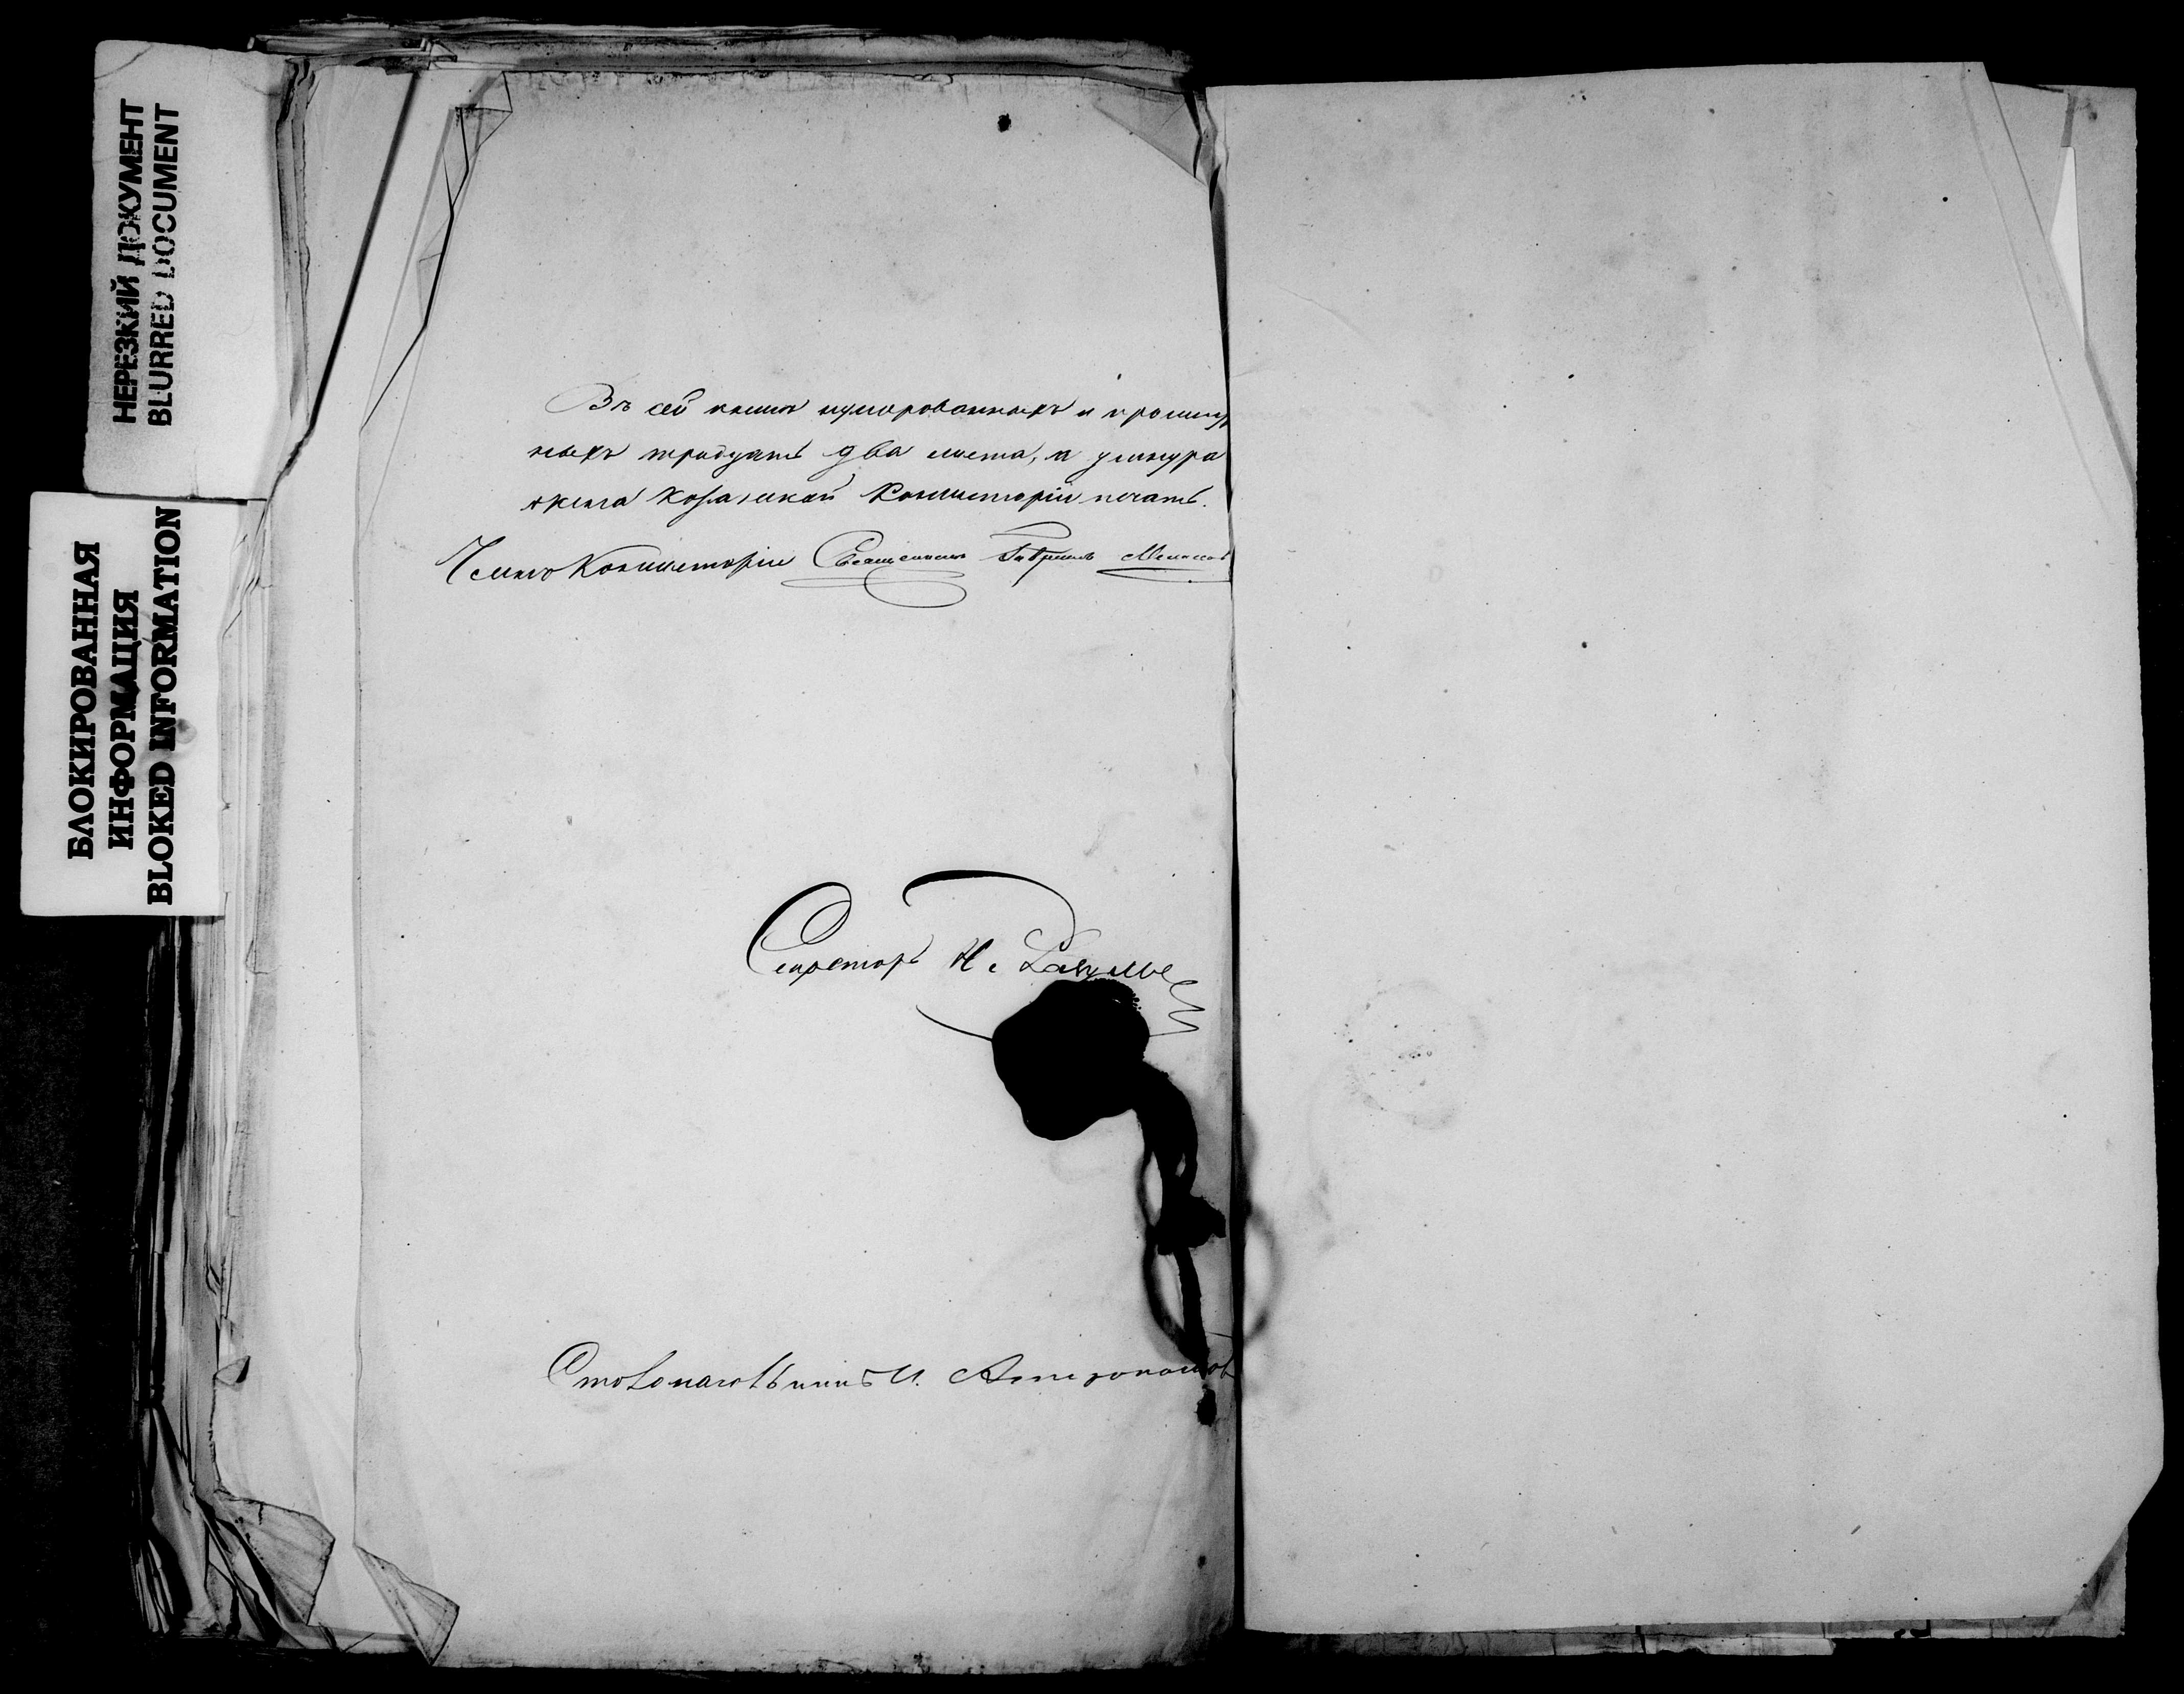 НЕРЕЗКИЙ ДОКУМЕНТ
BLURRED DOCUMENT
БЛОКИРОВАННАЯ
ИНФОРМАЦИЯ
BLOKED INFORMATION
Въ сей книгѣ нумерованныхъ и прошнур
ныхъ тридцать два листа, и у шнура
Казанской Консисторіи печать.
Членъ Консисторіи Священникъ Гавриилъ
Секретарь
Столоначальникъ